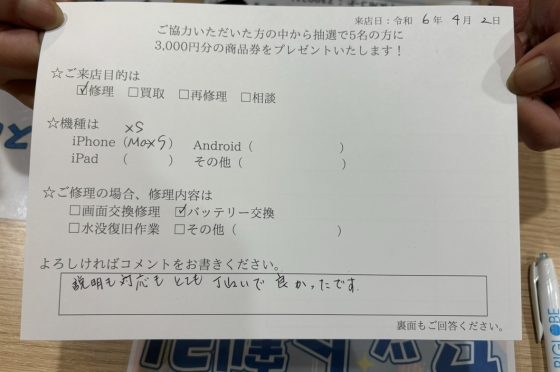 来店日：令和 6年 4月 2日
ご協力いただいた方の中から抽選で5名の方に
3,000円分の商品券をプレゼントいたします！
☆ご来店目的は
☑修理 □買取 □再修理 □相談
☆機種は
XS
iPhone（MaxS） Android（ ）
iPad （ ） その他（ ）
☆ご修理の場合、修理内容は
□画面交換修理 ☑バッテリー交換
□水没復旧作業 □その他（ ）
よろしければコメントをお書きください。
説明も対応もとても丁ねいで良かったです。
裏面もご回答ください。
BIGLOBE